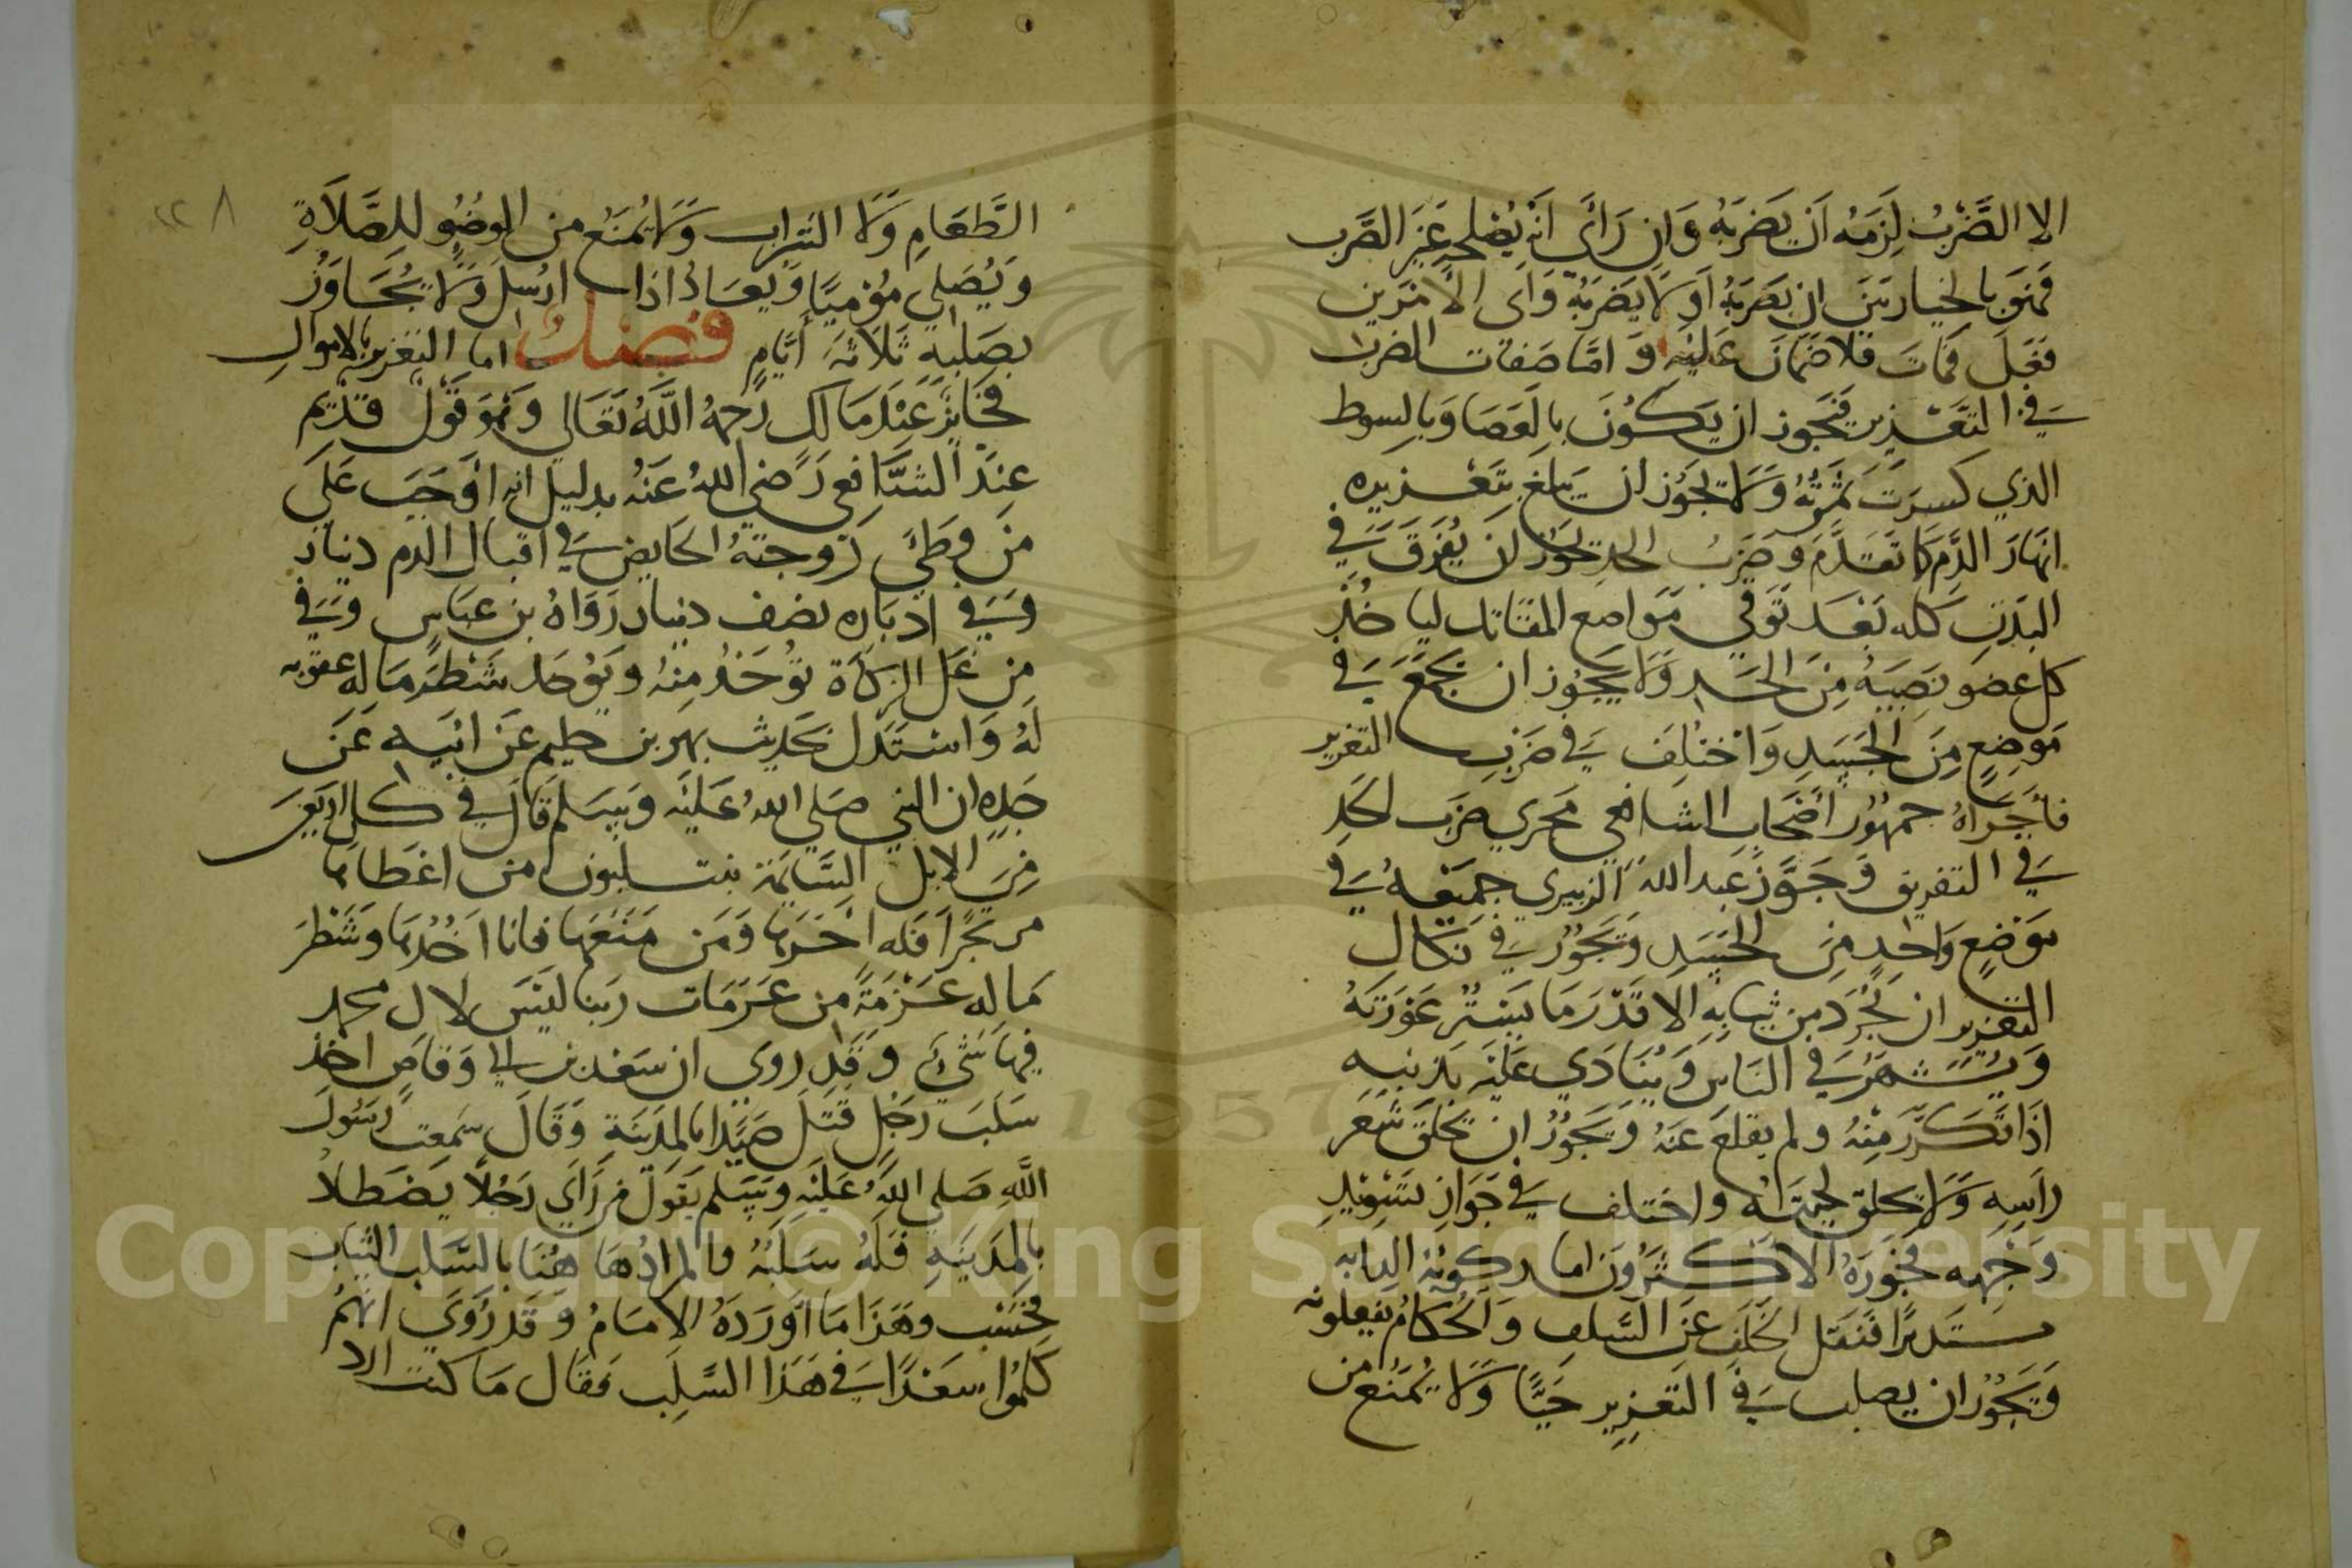 الا الضَّرْبُ لَزِمَهُ اَن يَضربَهُ وَان رَاَي انه يُصْلحه غَير الضَّرب
فَهوَ بالخيار بَين ان يَضربَهُ اَو لا يَضربَهُ وَاي الاَمْرَين
فَعَل فمَات فلا ضمَان عَلَيْهِ وَ امَّا صَفات الضرب
في التعْـزير فَيجوز ان يكُونَ بالعَصَا وَبالسوط
الذي كسرَت ثمرَتُهُ وَلا يجوُز ان يَبلغ بتَعْـزيره
انهَار الدَّمِ كما تقدَّمَ وضَربُ الحدِ يجوز ان يُفَرقَ في
البَدَن كله بَعْـدَ تَوقي مَواضع المقاتل ليَاخُذَ
كل عضو نَصيبَهُ مِنَ الحَدِ وَلا يجُوز ان يجمَعَ في
مَوضِعٍ مِنَ الجَسَدِ وَاخْتلِفَ في ضَربِ التعزير
فاَجْرَاهُ جمهُورُ اَصْحَابِ الشافعي مجري ضرَب الحَدِ
في التفريق وَجَوَّزَ عَبد الله الزبيري جمعَهُ في
مَوْضعٍ وَاحدٍ مِنَ الجَسَدِ وَيَجُوزُ في نَكَالِ
التعْزير ان يُجَرَدَ من ثيَابهِ الا قَدْرَ مَا يَسْتُر عَوْرَتَهُ
وَيُشْهَرُ في النَاس وَيُنَادَي عَلَيْهِ بذنبه
اذَا تَكَرَّرَ مِنْهُ ولم يقلع عَنْهُ وَيَجُوزُ ان يحلَقَ شَعَر
رَاسِهِ وَلا يحلق لحيَتُهُ واختلف في جَوَاز تسْويدِ
وَجْهِه فَجَوزَهُ الاَكْـثَرُونَ اما ركوبهُ الدابه
مستَدبرًا فنَقل الخَلَف عَنَ السَّلف وَالحُكامُ يفعلونه
وَيَجُوزُ ان يصلب في التَعْزير حَيَّا وَلا يُمنَعُ من
٢٢٨
الطَّعَامِ وَلا الشراب وَلا يُمنَعُ من الوضُوءِ للِصَّلاَةِ
وَيُصَلي مُوْميًا وَيُعَادُ اذا ارُسِلَ وَلا يُجَاوَزُ
بصَلبهِ ثَلاَثَةُ اَيَّامٍ فصل اما التعزير بالاموالِ
فجَايزٌ عَنْدَ مَالك رَحِمهُ اللَّهُ تَعَالي وَهْوَ قَوْل قدْيم
عِنْدَ الشَّافعي رَضي اللهُ عَنْهُ بدليل انه اَوْجَبَ عَلَي
مَن وَطئَ زَوجتَهُ الحَايض في اقبال الدم دنيار
وَفي ادبَاره نصف دنيار رَوَاهُ بن عبَاس وَفي
مِن غَل الزكَاة تؤخَذُ مِنهُ ويَؤخَذ شَطْرَ مَا له عقوبه
لَهُ وَاسْتَدَل بحَديث بهز بن حليم عَن ابيَه عَن
جَدِهِ ان النبي صَلي اللهُ عَليَه وَسَلم قَالَ في كل اربَعين
مِنَ الابل السَّايمَة بنت لبون من اعطاها
مؤتجرًا فَله اَجْرهَا وَمَن مَنَعَهَا فانا اخُذُهَا وَشَطْرَ
مَاله عَـزْمَةً من عَزَمَات ربنا ليْسَ لال محمد
فيهَا شيُ وَقَد روي ان سَعْد بن ابي وَقاصٍ اخذ
سَلَبَ رَجُلٍ قَتَل صَيْدًا بالمدَينَةِ وَقَالَ سَمعت رَسُولَ
اللهِ صَلي اللهُ عَليْه وَسَلم يَقوَل من رَاَي رَجُلاً يَصْطَاد
بالمدَينَةِ فَلهُ سَلَبُهُ والمرادُ هَاهُنَا بالسَّلب الثياب
فحَسْب وهَذا مَا اَوَرَدَهُ الامَامُ وَقَد رُوَي انهُمُ
كَلمُوا سَعْدًا في هَذا السَّلَب فقَال مَا كنت الارد